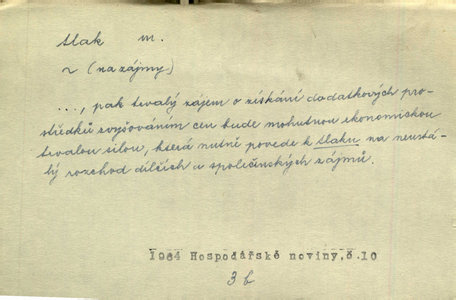 tlak m.
~ (na zájmy)
..., pak trvalý zájem o získání dodatkových pro-
středků zvyšováním cen bude mohutnou ekonomickou
trvalou silou, která nutně povede k tlaku na neustá-
lý rozchod dílčích a společenských zájmů.
1964 Hospodářské noviny, č.10
3 b